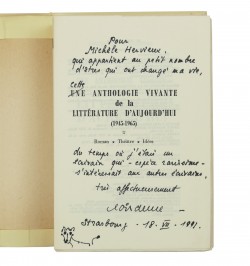 Pour
Michèle Hervieux,
qui appartient au petit nombre
d'êtres qui ont changé ma vie,
cette
UNE ANTHOLOGIE VIVANTE
de la
LITTÉRATURE D'AUJOURD'HUI
(1945-1965)
Roman • Théâtre • Idées
du temps où j'étais un
écrivain qui - espèce rarissime -
s'intéressait aux autres écrivains,
très affectueusement
Strasbourg - 18 - VII - 1991.